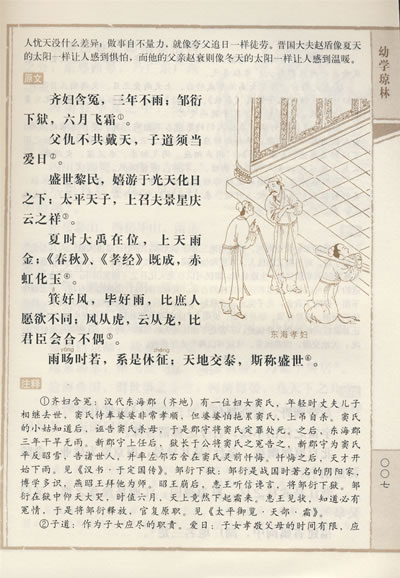 人忧天没什么差异；做事自不量力，就像夸父追日一样徒劳。晋国大夫赵盾像夏天
的太阳一样让人感到惧怕，而他的父亲赵衰则像冬天的太阳一样让人感到温暖。
原文
齐妇含冤，三年不雨；邹衍
下狱，六月飞霜①。
父仇不共戴天，子道须当
爱日②。
盛世黎民，嬉游于光天化日
之下；太平天子，上召夫景星庆
云之祥③。
夏时大禹在位，上天雨
金；《春秋》、《孝经》既成，赤
虹化玉④。
箕好风，毕好雨，比庶人
愿欲不同；风从虎，云从龙，比
君臣会合不偶⑤。
雨旸时若，系是休征；天地交泰，斯称盛世⑥。
东海孝妇
注释
①齐妇含冤：汉代东海郡（齐地）有一位妇女窦氏，年轻时丈夫儿子
相继去世，窦氏侍奉婆婆非常孝顺，但婆婆怕拖累窦氏，上吊自杀。窦氏
的小姑知道后，诬告窦氏杀母，于是郡守将窦氏定罪处死。之后，东海郡
三年干旱无雨。新郡守上任后，狱长于公将窦氏之冤告之，新郡守为窦氏
平反昭雪，告诸世人，并率左邻右舍在窦氏灵前忏悔。忏悔之后，天才开
始下雨。见《汉书·于定国传》。邹衍下狱：邹衍是战国时著名的阴阳家，
博学多识，燕昭王拜他为师。昭王崩后，惠王听信谗言，将邹衍下狱。邹
衍在狱中仰天大哭，时值六月，天上竟然下起霜来。惠王见状，知道必有
冤情，于是将邹衍释放，官复原职。见《太平御览·天部·霜》。
②子道：作为子女应尽的职责。爱日：子女孝敬父母的时间有限，应
幼学琼林
〇〇七